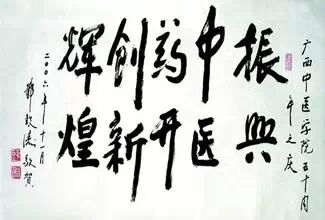 广西中医学院五十周
年之庆
振興
中医
药开
創新
輝煌
二〇〇六年十一月
敬賀